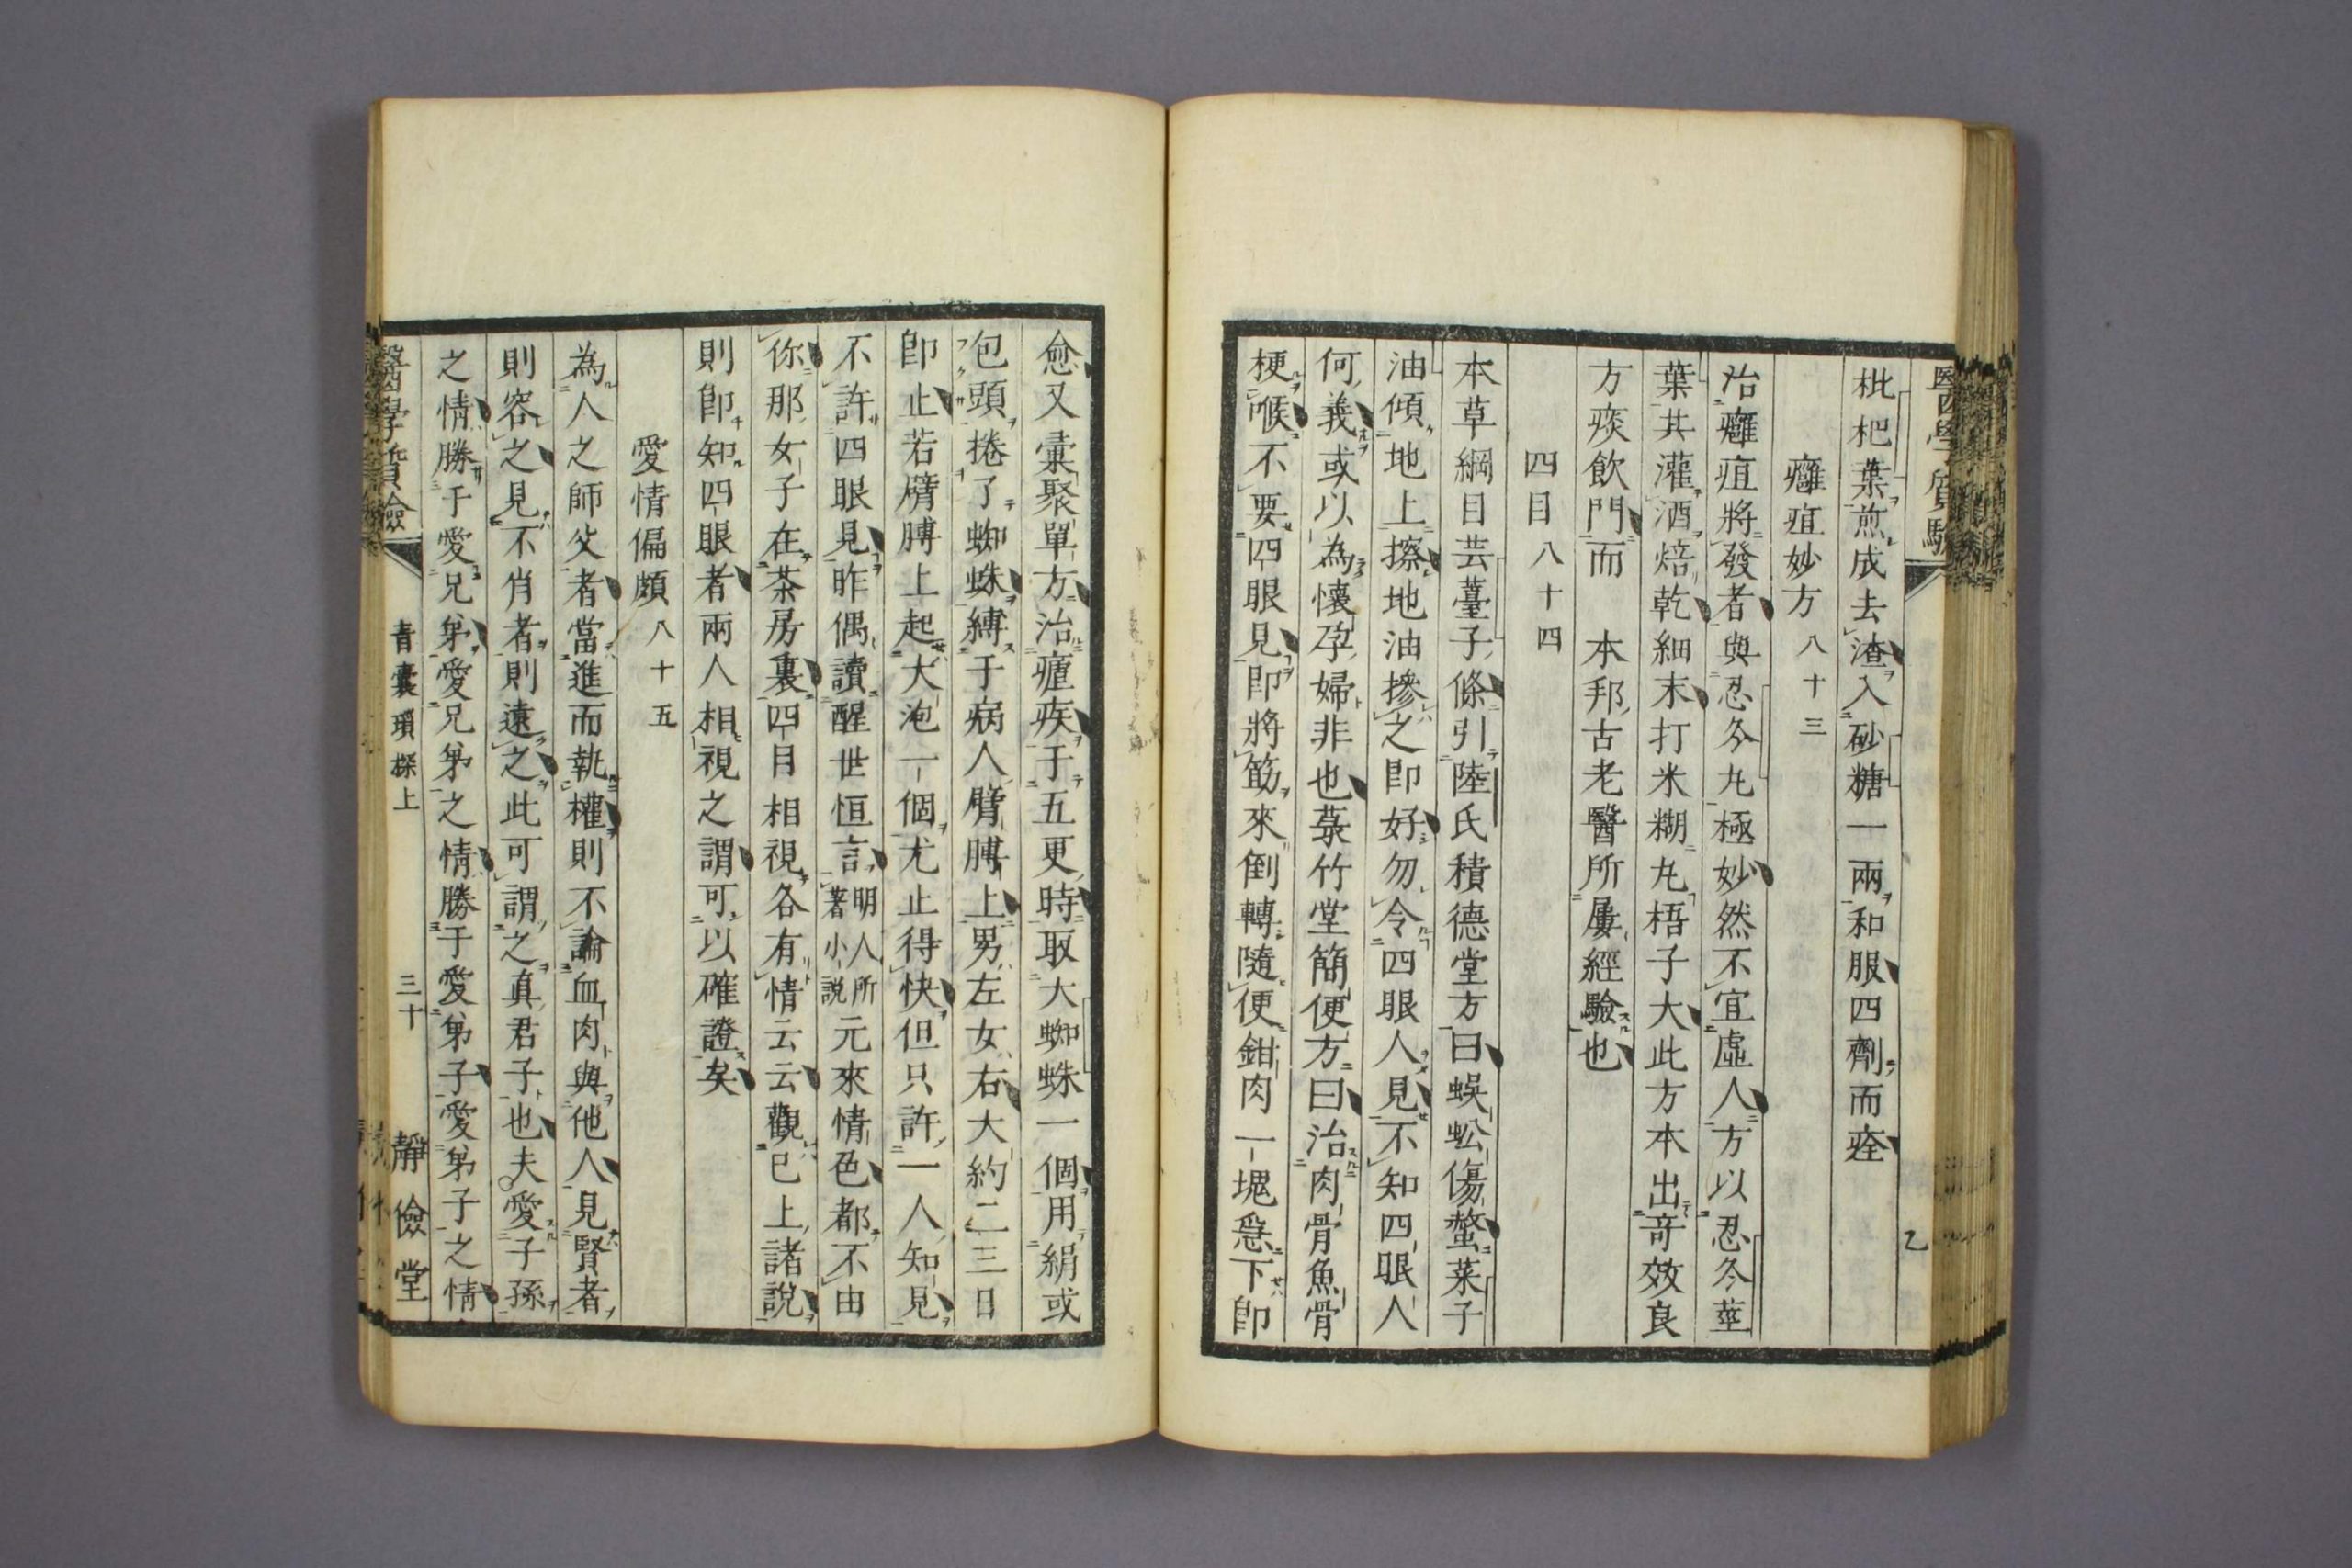 醫學質驗
枇杷葉煎成去渣入砂糖一兩和服四劑而痊
癰疽妙方八十三
治癰疽將發者與忍冬丸極妙然不宜虛人方以忍冬莖
葉共灌酒焙乾細末打米糊丸梧子大此方本出竒效良
方痰飲門而　本邦古老醫所屢經驗也
四目八十四
本草綱目芸薹子條引陸氏積德堂方曰蜈蚣傷螫菜子
油傾地上擦地油摻之即好勿令四眼人見不知四眼人
何義或以為懷孕婦非也蔡竹堂簡便方曰治肉骨魚骨
梗喉不要四眼見即將筯來倒轉隨便鉗肉一塊急下即
愈又彙聚單方治瘧疾于五更時取大蜘蛛一個用絹或
包頭捲了蜘蛛縛于病人臂膊上男左女右大約二三日
即止若臂膊上起大泡一個尤止得快但只許一人知見
不許四眼見昨偶讀醒世恒言明人所著小說元來情色都不由
你那女子在茶房裏四目相視各有情云云觀已上諸說
則即知四眼者兩人相視之謂可以確證矣
愛情偏頗八十五
為人之師父者當進而執權則不論血肉與他人見賢者
則容之見不肖者則遠之此可謂之真君子也夫愛子孫
之情勝于愛兄弟愛兄弟之情勝于愛弟子愛弟子之情
醫學質驗
青囊瑣探上
三十
靜儉堂